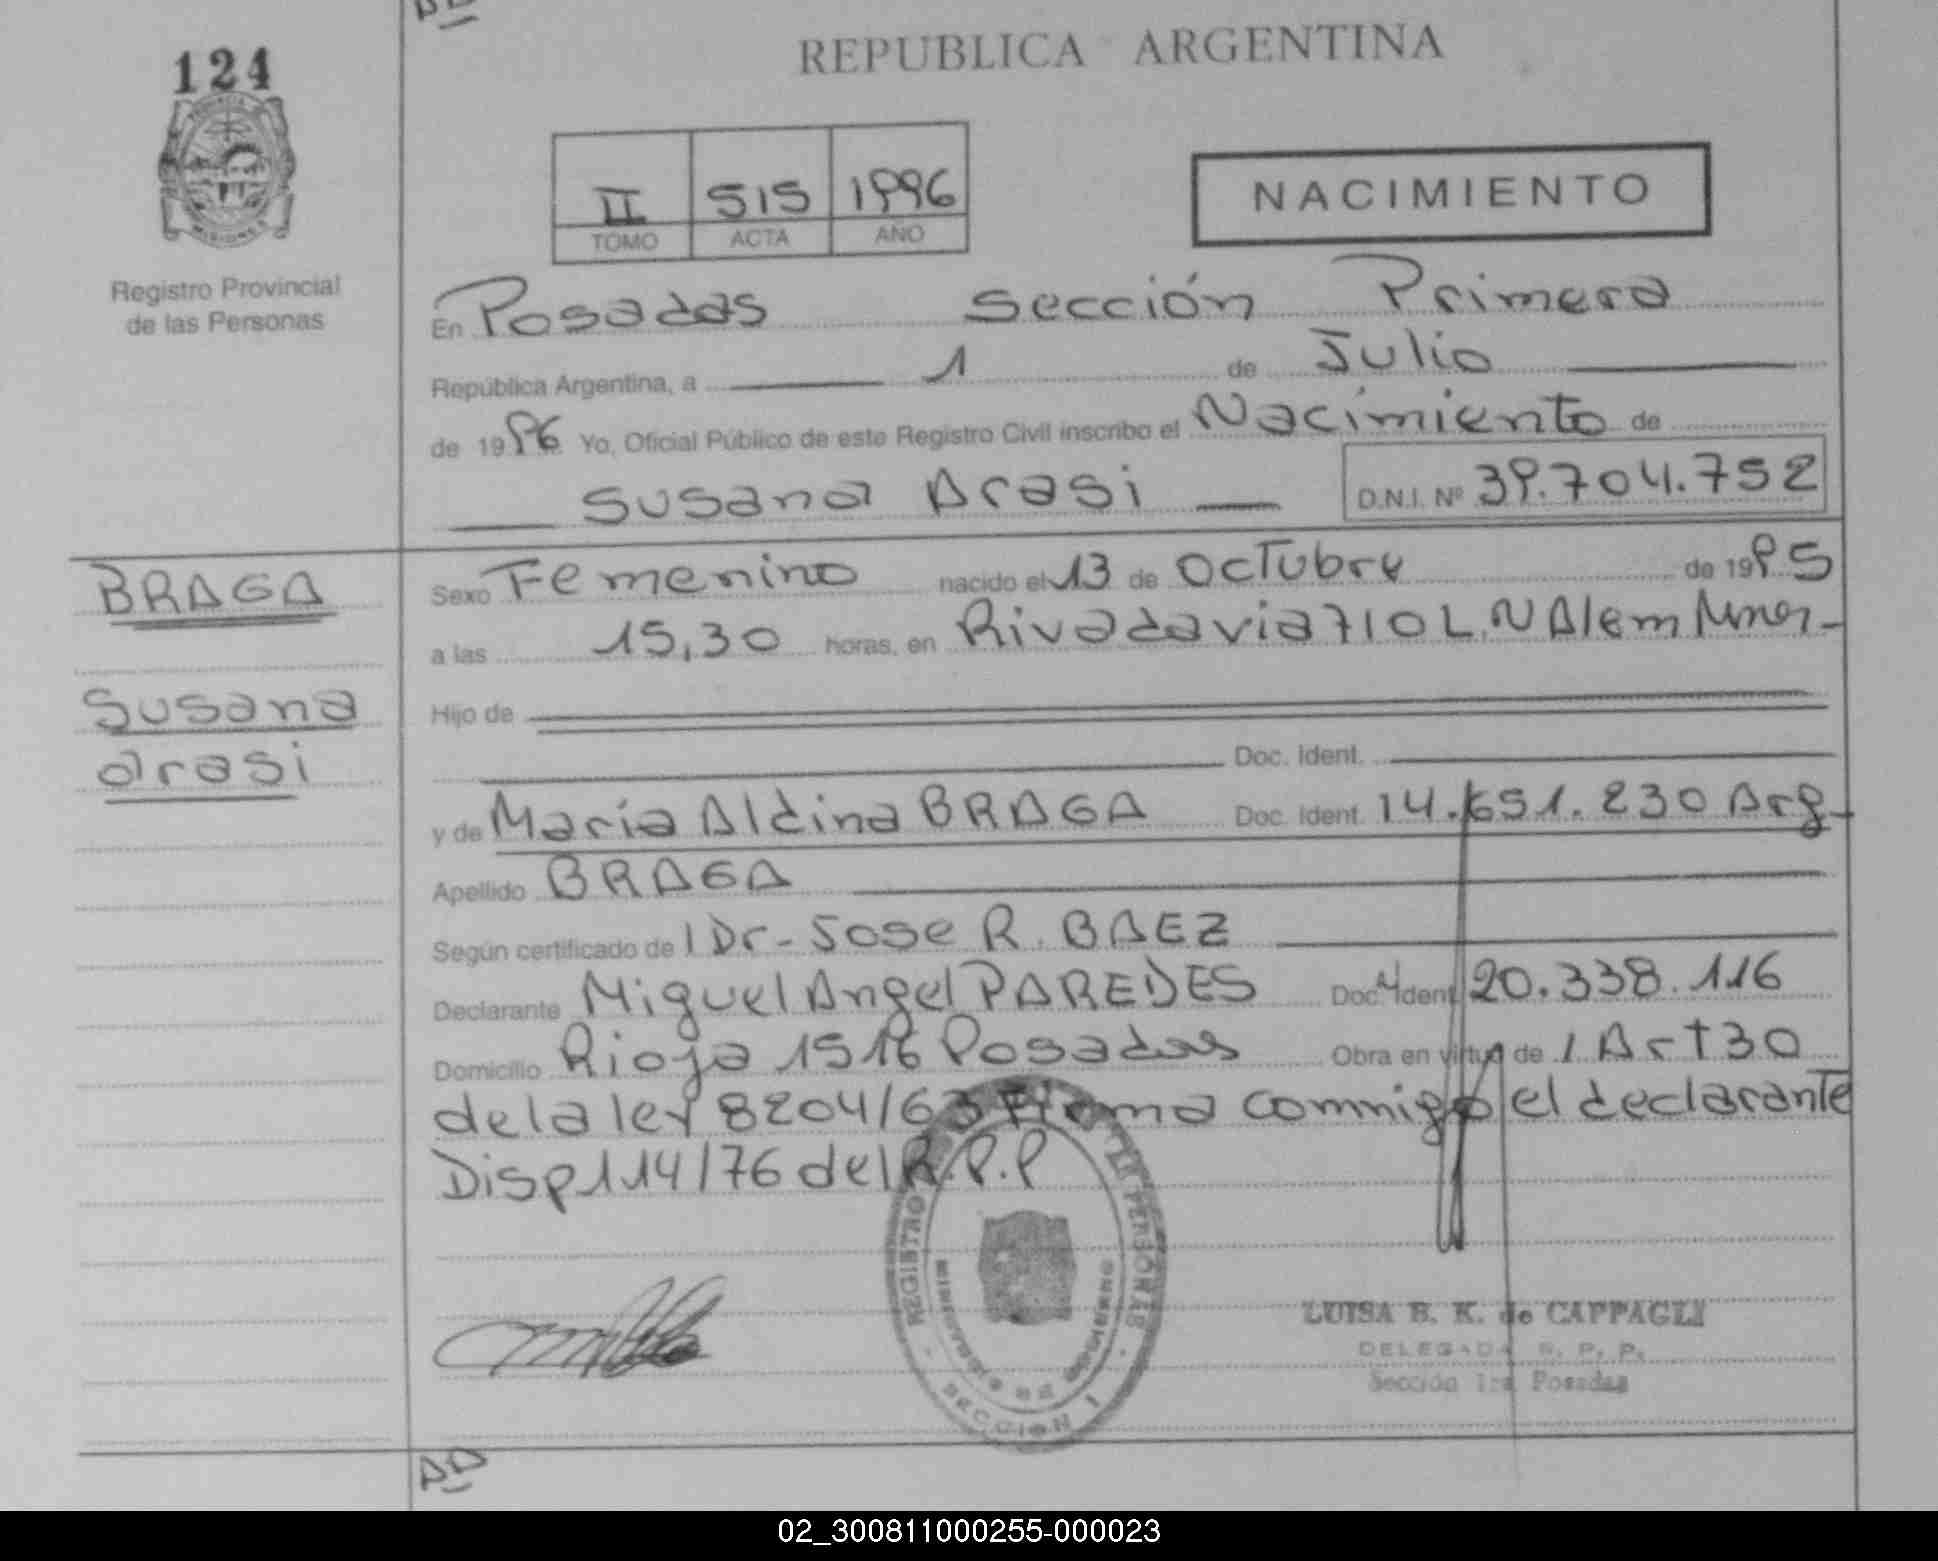 124
REPUBLICA ARGENTINA
II 515 1996
TOMO ACTA AÑO
NACIMIENTO
MISIONES
Registro Provincial
de las Personas
En Posadas Sección Primera
República Argentina, a 1 de Julio
de 1996 Yo, Oficial Público de este Registro Civil inscribo el Nacimiento de
Susana Arasi D.N.I. Nº 39.704.752
BRAGA
Susana
arasi
Sexo Femenino nacido el 13 de Octubre de 1995
a las 15,30 horas, en Rivadavia 710 L.N Alem
Hijo de
Doc. Ident.
y de María Aldina BRAGA Doc. Ident. 14.651.230 Arg-
Apellido BRAGA
Según certificado de l Dr- Jose R. BAEZ
Declarante Miguel Angel PAREDES Doc. Ident 20.338.116
Domicilio Rioja 1516 Posadas Obra en virtud de l Art 30
de la ley 8204/63 Firma commigo el declarante
Disp 114/76 del R.P.P
REGISTRO PERSONAS
SECCION 1
LUISA B. K. de CAPPAGLI
DELEGADA R. P. P.
Sección 1ra Posadas
02_300811000255-000023